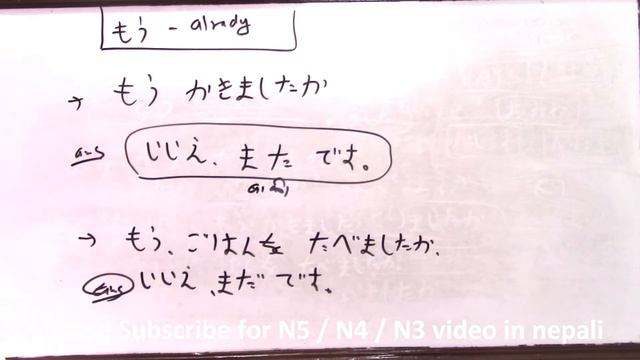 もう - alrady
→ もう かきましたか
ans いいえ、また です。
→ もう、ごはんを たべましたか、
ans いいえ、まだ です。
se Subscribe for N5 / N4 / N3 video in nepali